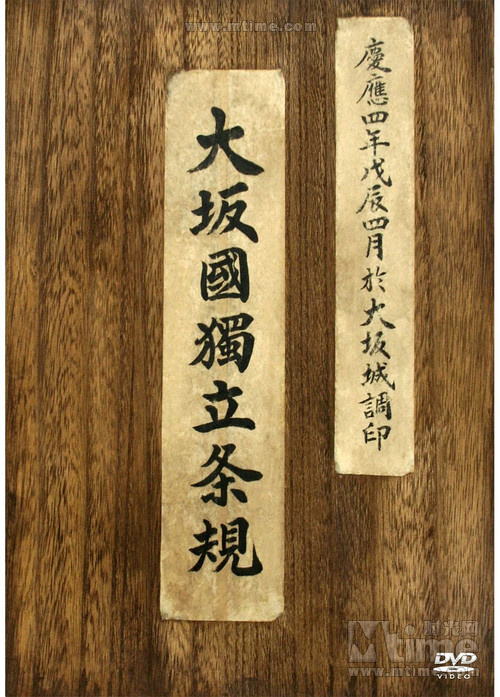 www.mtime.com
慶應四年戊辰四月於大坂城調印
大坂國獨立条規
時光网
Mtime
www.mtime.com
DVD
VIDEO